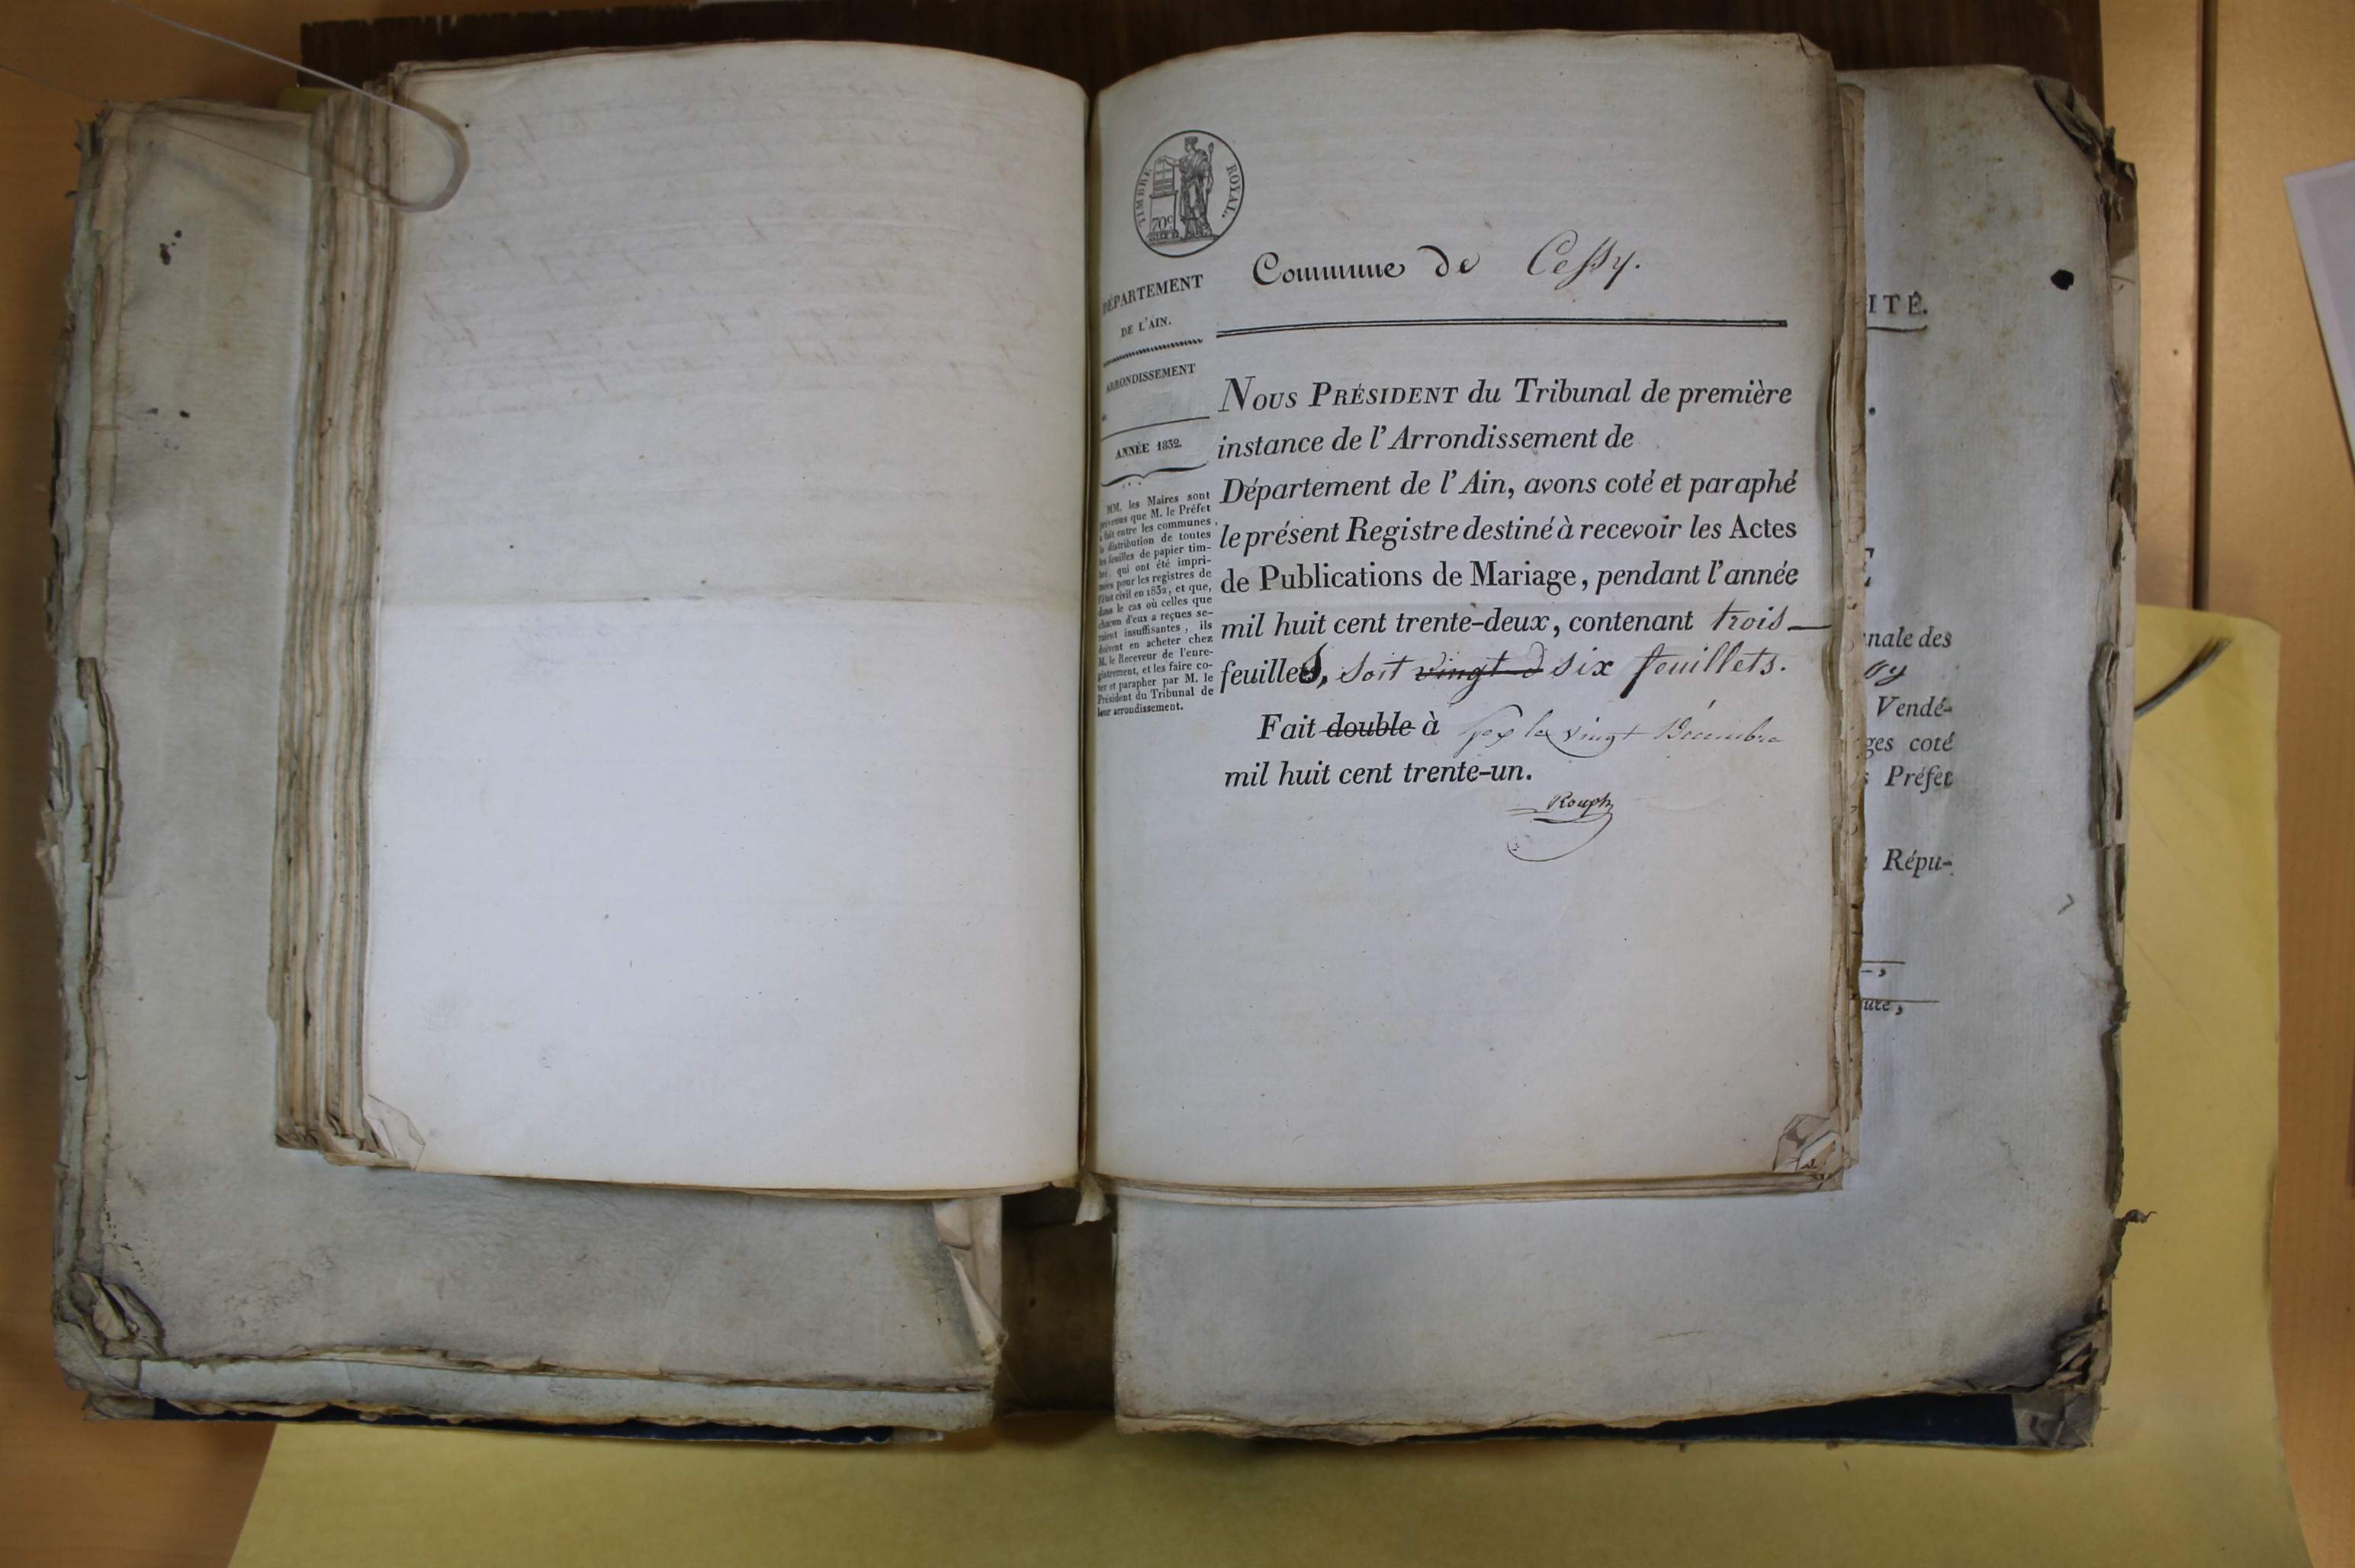 TIMBRE ROYAL.
70c
Commune de Cessy.
DÉPARTEMENT
DE L'AIN.
ARRONDISSEMENT
ANNÉE 1832.
MM. les Maires sont
prévenus que M. le Préfet
a fait entre les communes,
la distribution de toutes
les feuilles de papier tim-
bré, qui ont été impri-
mées pour les registres de
l'état civil en 1832, et que,
dans le cas où celles que
chacun d'eux a reçues se-
raient insuffisantes, ils
doivent en acheter chez
M. le Receveur de l'enre-
gistrement, et les faire co-
ter et parapher par M. le
Président du Tribunal de
leur arrondissement.
NOUS PRÉSIDENT du Tribunal de première
instance de l'Arrondissement de
Département de l'Ain, avons coté et paraphé
le présent Registre destiné à recevoir les Actes
de Publications de Mariage, pendant l'année
mil huit cent trente-deux, contenant trois
feuilles, soit vingt d six feuillets.
Fait double à Gex le vingt Décembre
mil huit cent trente-un.
Rouph
ITÉ.
nale des
Vendé-
ges coté
s Préfet
Répu-
ure,